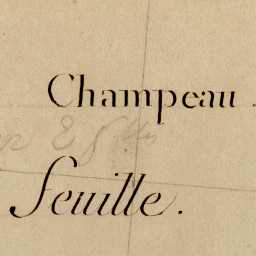 Champeau.
feuille.